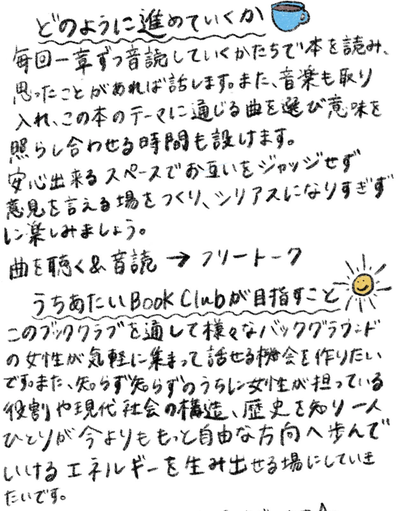 どのように進めていくか
毎回一章ずつ音読していくかたちで本を読み、
思ったことがあれば話します。また、音楽も取り
入れ、この本のテーマに通じる曲を選び意味を
照らし合わせる時間も設けます。
安心出来るスペースでお互いをジャッジせず
意見を言える場をつくり、シリアスになりすぎず
に楽しみましょう。
曲を聴く&音読 → フリートーク
うちあたいBook Clubが目指すこと
このブッククラブを通して様々なバックグラウンド
の女性が気軽に集まって話せる機会を作りたい
です。また、知らず知らずのうちに女性が担っている
役割や現代社会の構造、歴史を知り一人
ひとりが今よりももっと自由な方向へ歩んで
いけるエネルギーを生み出せる場にしていき
たいです。